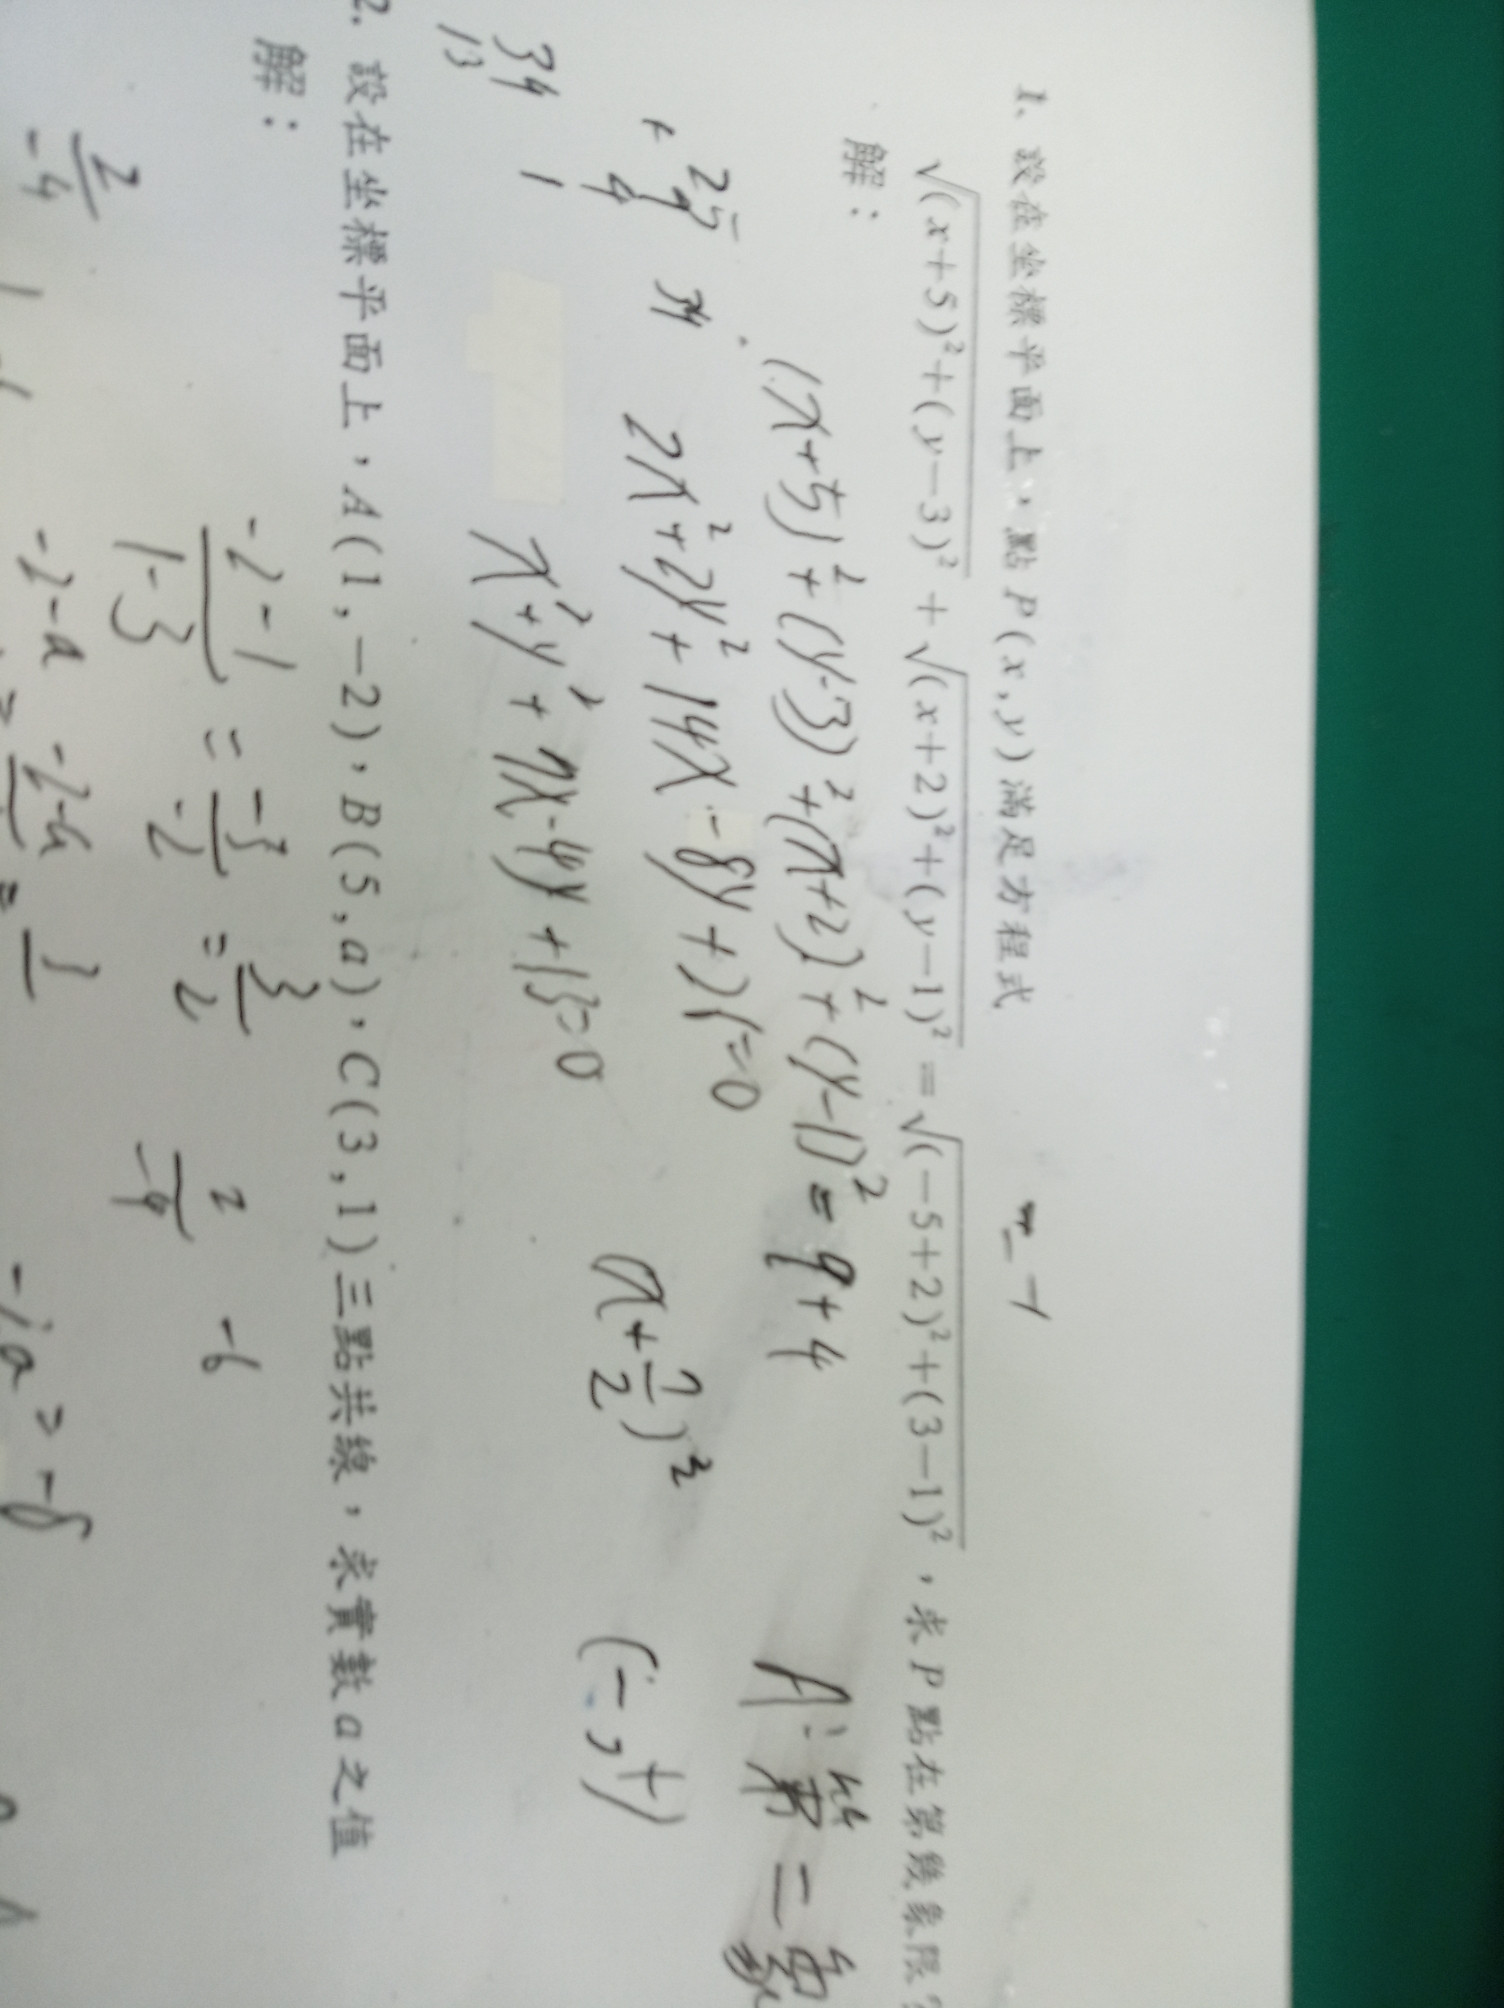 1、設在坐標平面上，點P(x,y)滿足方程式
√(x+5)²+(y−3)² + √(x+2)²+(y−1)² = √(−5+2)²+(3−1)²，求P點在第幾象限?
解：
(x+5)²+(y-3)²+(x+2)²+(y-1)²=9+4
A:第二象
25
34
2x²+2y²+14x-8y+26=0
(x+7/2)²
(-,+)
34 1
13
x²+y²+7x-4y+13=0
2. 設在坐標平面上，A(1,−2)，B(5,a)，C(3,1)三點共線，求實數a之值
解：
-2-1/1-3 = -3/-2 = 3/2
2/-4 -6
2/-4
-2-a = -2-a/
-2a=-8